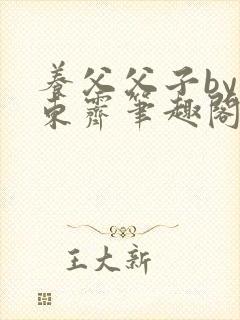 养父父子by
东霽笔趣阁
王大新